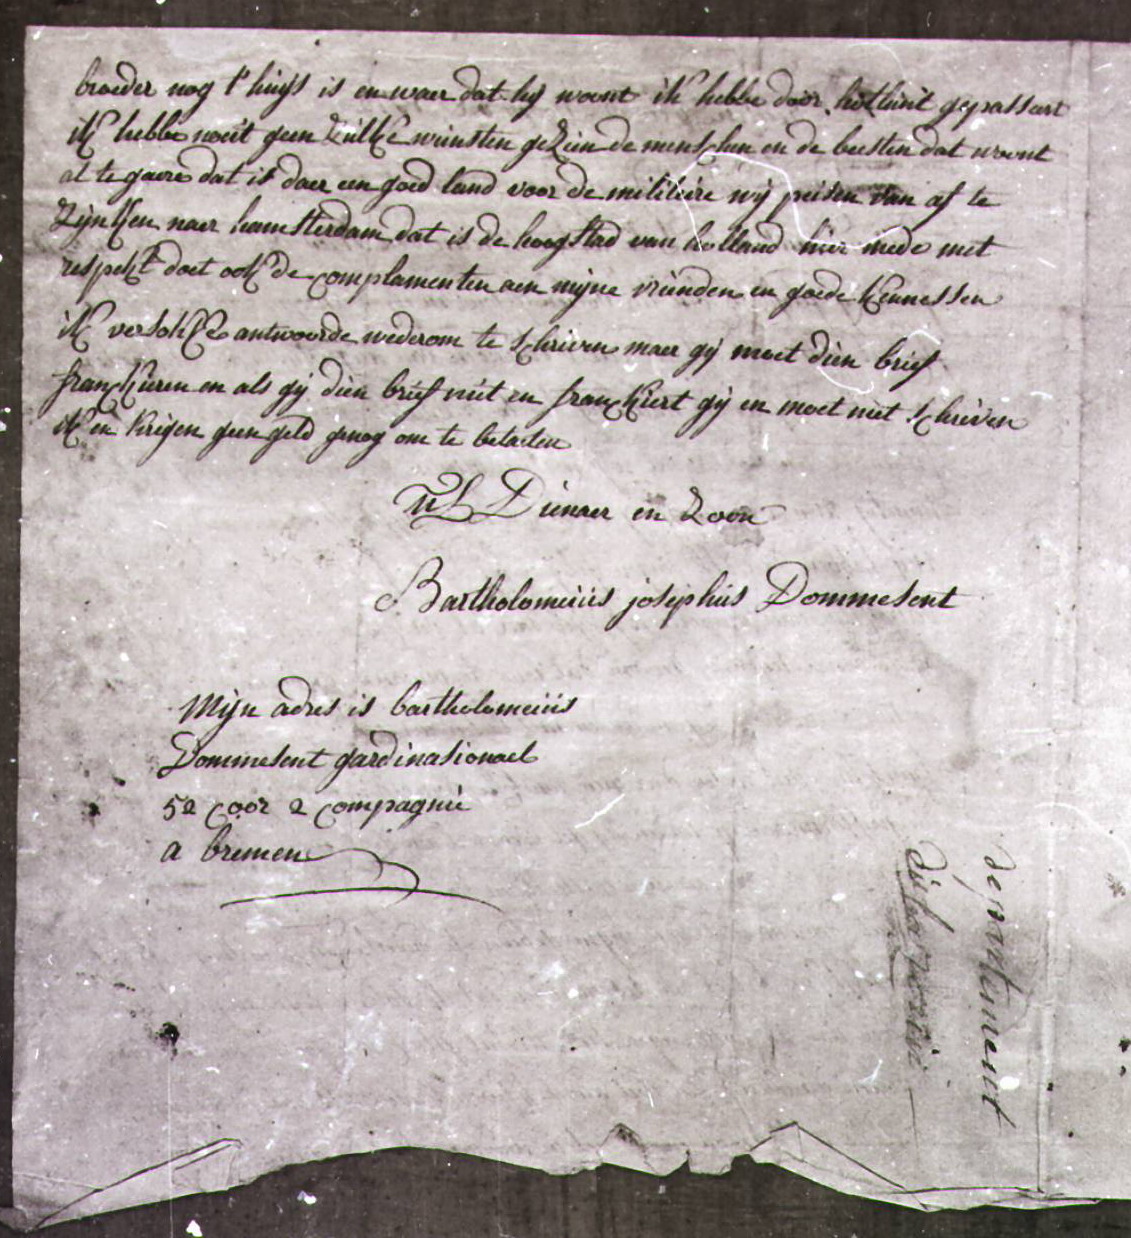 broeder nog t'huijs is en waer dat hij woont ik hebbe door hollant gepasseert
ik hebbe noeit geen zulke winsten gezien de menschen en de beesten dat woont
al te gaere dat is daer een goed land voor de militaire wij peisen van af te
zynken naer hamsterdam dat is de hoogstad van holland hier mede met
respekt doet ook de complamenten aen mijne vrinden en goede kennessen
ik versoke antwoorde wederom te schriven maer gij moet dien brief
franckieren en als gij dien brief niet en franckiert gij en moet niet schriven
ik en krigen geen geld genog om te betaelen
UL Dienaer en zoon
Bartholomeius josephus Dommesent
Mijn adres is bartholomeiis
Dommesent gardinasionael
52 coor 2 compagnie
a bremen
departement